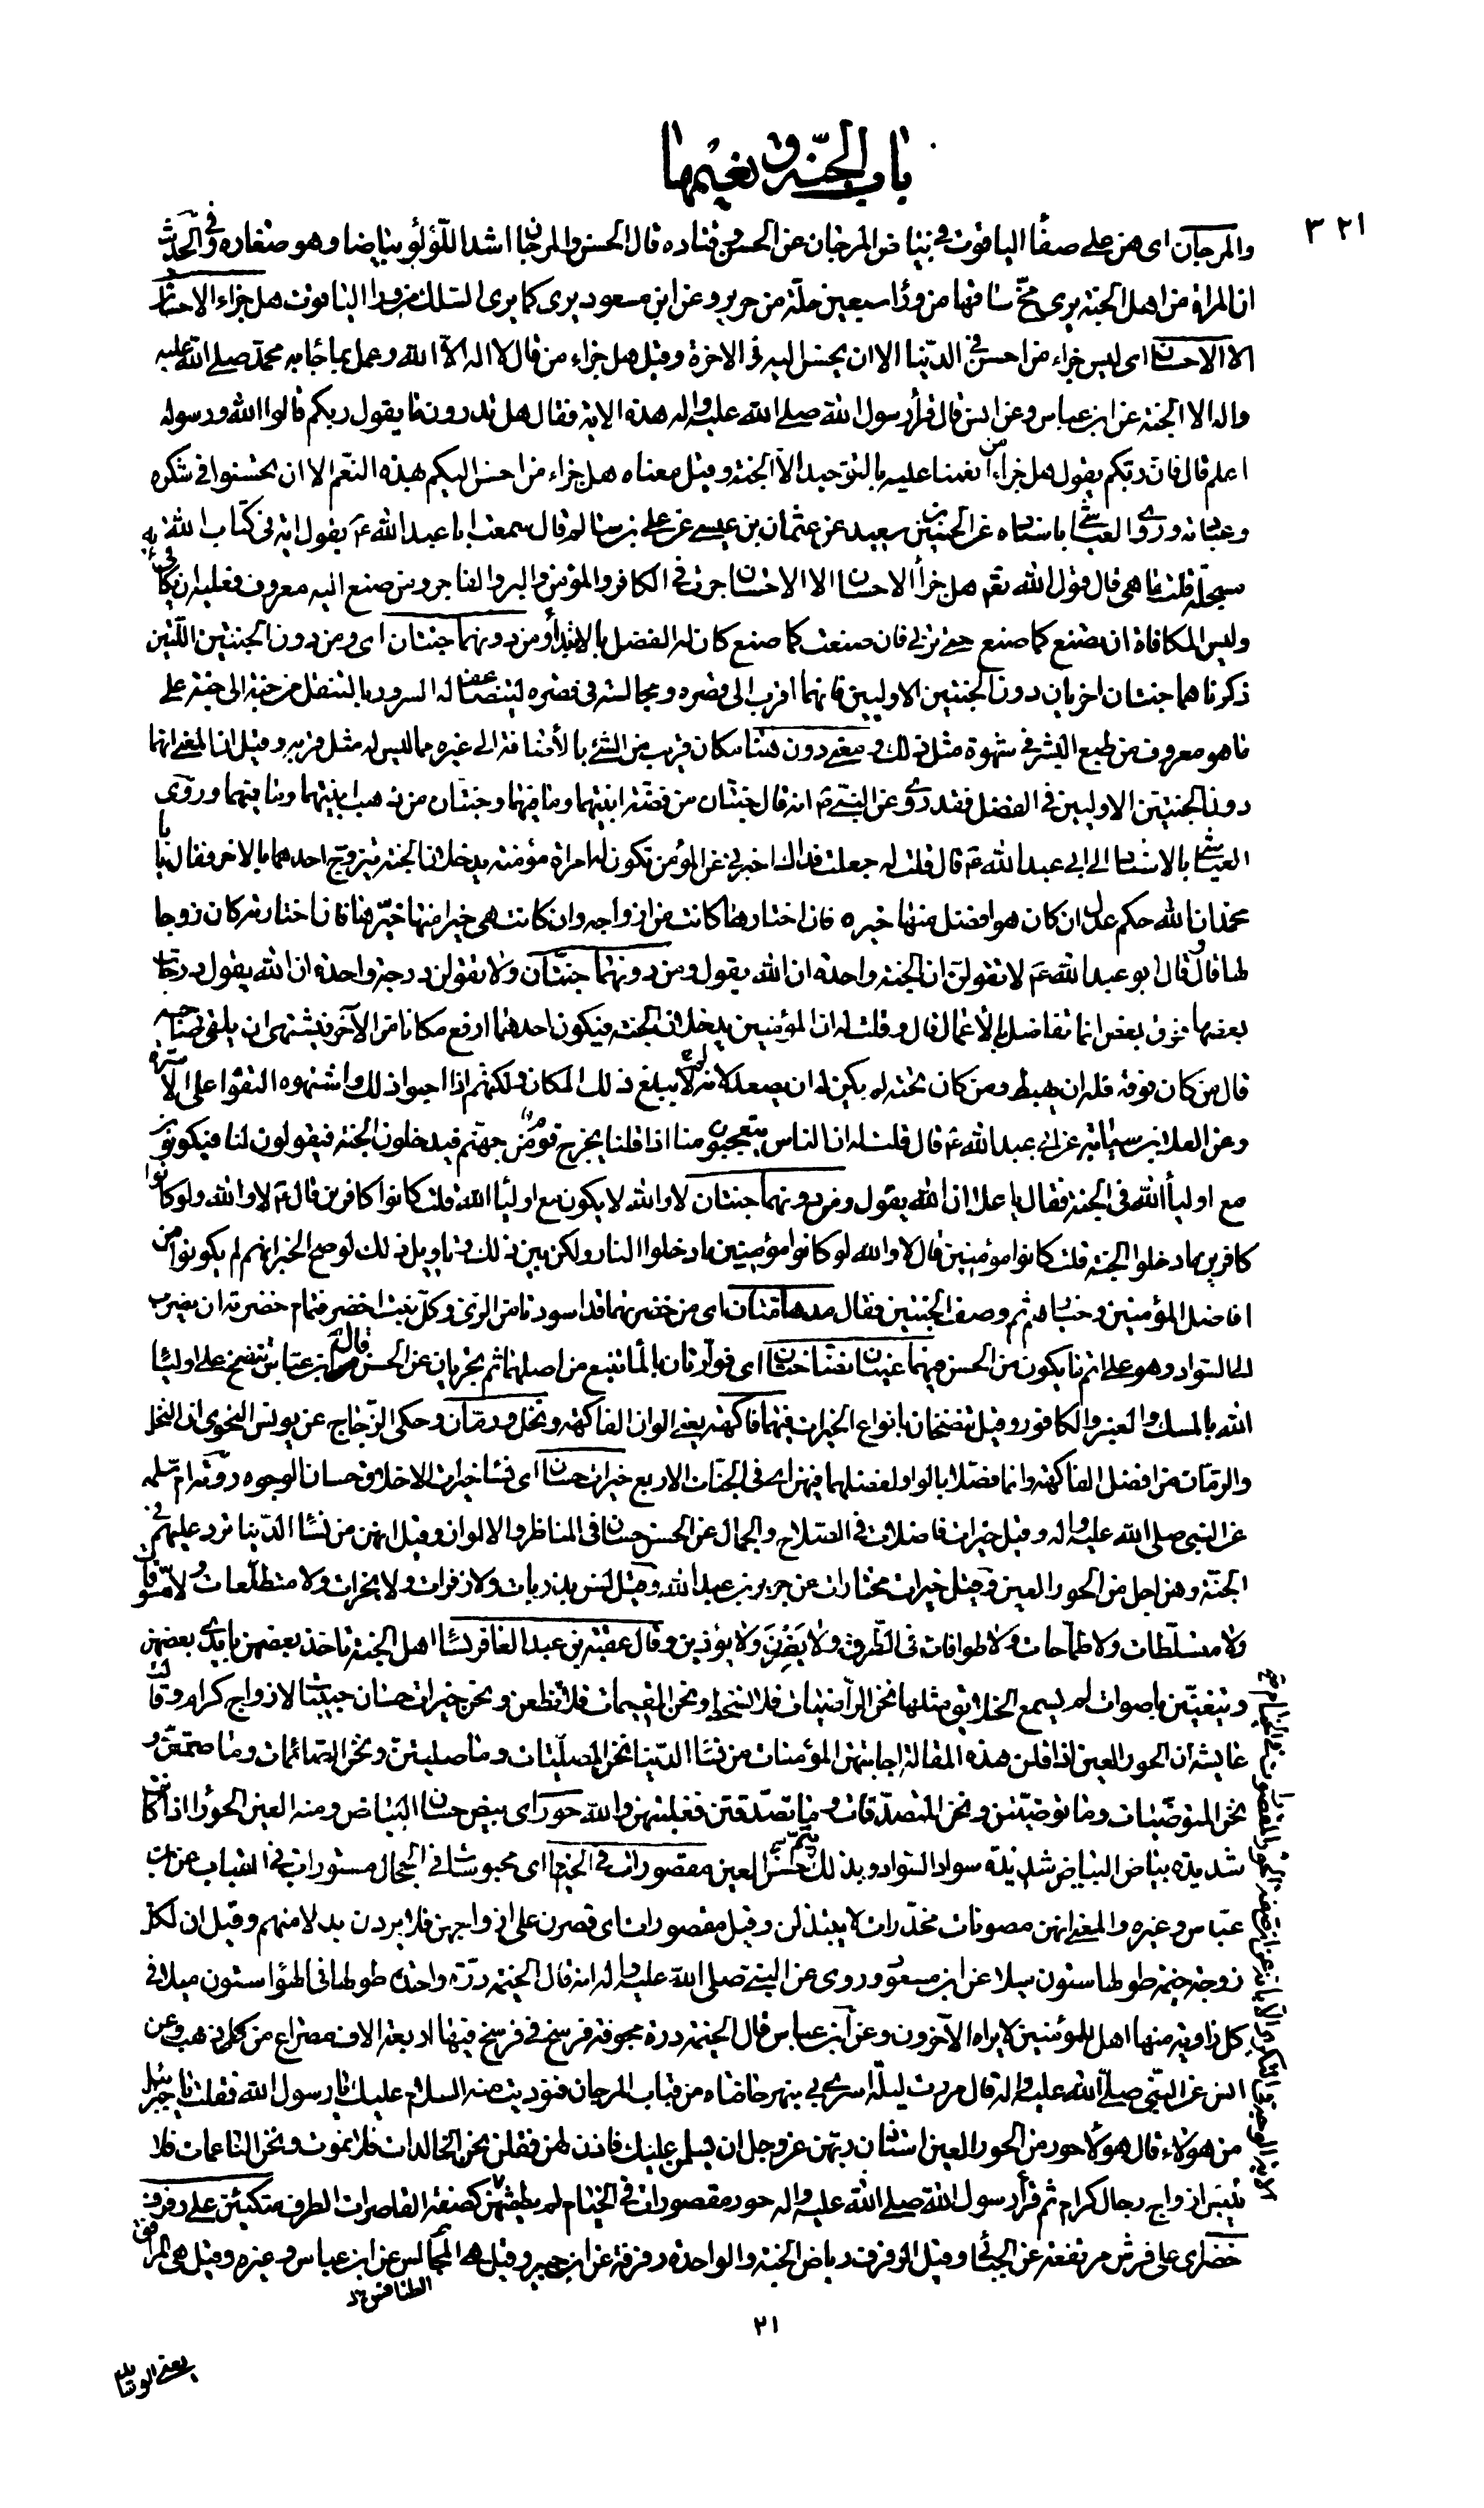 باب الجنة و نعيمها
٣٢١
والمرجان اى هن على صفاء الياقوت فى بياض المرجان عن الحسن وقتاده قال الحسن والمرجان اشد اللؤلؤ بياضا وهو صغاره وفى الحديث
ان المراة من اهل الجنة يرى مخ ساقها من وراء سبعين حلة من حرير وعن ابن مسعود يرى كما يرى السلك من وراء الياقوت هل جزاء الاحسان
الا الاحسان اى ليس جزاء من احسن فى الدنيا الا ان يحسن اليه فى الاخرة وقيل هل جزاء من قال لا اله الا الله وعمل بما جاء به محمد صلى الله عليه
واله الا الجنة عن ابن عباس وعن انس قال قرأ رسول الله صلى الله عليه واله هذه الاية فقال هل تدرون ما يقول ربكم قالوا الله ورسوله
اعلم قال فان ربكم يقول هل جزاء من انعمنا عليه بالتوحيد الا الجنة وقيل معناه هل جزاء من احسن اليكم بهذه النعم الا ان تحسنوا فى شكره
وعبادته وروى العياشى باسناده عن الحسين بن سعيد عن عثمان بن عيسى عن على بن سالم قال سمعت ابا عبد الله ع يقول اية فى كتاب الله
مسجلة قلت ما هى قال قول الله تعم هل جزاء الاحسان الا الاحسان جرت فى الكافر والمؤمن والبر والفاجر ومن صنع اليه معروف فعليه ان يكافى به
وليس المكافاة ان يصنع كما صنع حتى يربى فان صنعت كما صنع كان له الفضل بالابتداء ومن دونهما جنتان اى ومن دون الجنتين اللتين
ذكرناهما جنتان اخريان دون الجنتين الاوليين فانهما اقرب الى قصره ومجالسه فى قصره ليتضاعف له السرور بالتنقل من جنة الى جنة على
ما هو معروف من طبع البشر فى شهوة مثل ذلك ومعنى دون هنا مكان قريب من الشئ بالاضافة الى غيره مما ليس له مثل قربه وقيل ان المعنى انهما
دون الجنتين الاوليين فى الفضل فقد روى عن النبى ص انه قال جنتان من فضة ابنيتهما وما فيهما وجنتان من ذهب ابنيتهما وما فيهما وروى
العياشى بالاسناد الى ابى عبد الله ع قال قلت له جعلت فداك اخبرنى عن المؤمن تكون له امراة مؤمنة يدخلان الجنة يتزوج احدهما بالاخر فقال يا با
محمد ان الله حكم عدل ان كان هو افضل منها خيره فان اختارها كانت من ازواجه وان كانت هى خيرا منها خيرها فان اختارته كان زوجا
لها قال وقال ابو عبد الله ع لا تقولن ان الجنة واحدة ان الله يقول ومن دونهما جنتان ولا تقولن درجة واحدة ان الله يقول درجات
بعضها فوق بعض انما تفاضل بالاعمال قال وقلت له ان المؤمنين يدخلان الجنة فيكون احدهما ارفع مكانا من الآخر فيشتهى ان يلقى صاحبه
قال من كان فوقه فله ان يهبط ومن كان تحته لم يكن له ان يصعد لانه لم يبلغ ذلك المكان ولكنهم اذا احبوا ذلك واشتهوه التقوا على الاسرة
وعن العلا بن سيابه عن ابى عبد الله ع قال قلت له ان الناس يتعجبون منا اذا قلنا يخرج قوم من جهنم فيدخلون الجنة فيقولون لنا فيكونون
مع اولياء الله فى الجنة فقال يا علا ان الله يقول ومن دونهما جنتان لا والله لا يكون مع اولياء الله قلت كانوا كافرين قال ع لا والله ولو كانوا
كافرين ما دخلوا الجنة قلت كانوا مؤمنين قال لا والله لو كانوا مؤمنين ما دخلوا النار ولكن بين ذلك وتاويل ذلك لو صح الخبر انهم لم يكونوا من
افاضل المؤمنين وخيارهم ثم وصف الجنتين فقال مدهامتان اى من خضرتهما قد اسودتا من الرى وكل نبت اخضر فتمام خضرته ان يضرب
الى السواد وهو على اتم ما يكون من الحسن فيهما عينان نضاختان اى فوارتان بالماء تنبع من اصلهما ثم تجريان عن الحسن قال ابن عباس تنضخ على اولياء
الله بالمسك والعنبر والكافور وقيل تنضخان بانواع الخيرات فيهما فاكهة يعنى الوان الفاكهة ونخل ورمان وحكى الزجاج عن يونس النحوى ان النخل
والرمان من افضل الفاكهة وانما فضلا بالواو لفضلهما فيهن اى فى الجنات الاربع خيرات حسان اى نساء خيرات الاخلاق حسان الوجوه روته ام سلمه
عن النبى صلى الله عليه واله وقيل خيرات فاضلات فى الصلاح والجمال عن الحسن حسان فى المناظر والالوان وقيل انهن من نساء الدنيا ترد عليهم فى
الجنة وهن اجمل من الحور العين وقيل خيرات مختارات عن جرير بن عبد الله وقيل لسن بذربات ولا زفرات ولا بخرات ولا متطلعات ولا متسوفات
ولا متسلطات ولا طماحات ولا طوافات فى الطرق ولا يغرن ولا يؤذين وقال عقبة بن عبد الغافر نساء اهل الجنة تاخذ بعضهن بايدى بعض
ويتغنين باصوات لم يسمع الخلايق مثلها نحن الراضيات فلا نسخط ونحن المقيمات فلا نظعن ونحن خيرات حسان حبيبات لازواج كرام وقالت
عايشه ان الحور العين اذا قلن هذه المقالة اجابتهن المؤمنات من نساء الدنيا نحن المصليات وما صليتن ونحن الصائمات وما صمتن و
نحن المتوضيات وما توضيتن ونحن المتصدقات وما تصدقتن فغلبنهن والله حور اى بيض حسان البياض ومنه العين الحوراء اذا كانت
شديدة بياض البياض شديدة سواد السواد وبذلك يتم حسن العين مقصورات فى الخيام اى محبوسات فى الحجال مستورات فى القباب عن ابن
عباس وغيره والمعنى انهن مصونات مخدرات لا يبتذلن وقيل مقصورات اى قصرن على ازواجهن فلا يردن بدلا منهم وقيل ان لكل
زوجة خيمة طولها ستون ميلا عن ابن مسعود وروى عن النبى صلى الله عليه واله انه قال الخيمة درة واحدة طولها فى الهواء ستون ميلا فى
كل زاوية منها اهل للمؤمنين لا يراه الآخرون وعن ابن عباس قال الخيمة درة مجوفة فرسخ فى فرسخ فيها اربعة الاف مصراع من ذهب وعن
انس عن النبى صلى الله عليه واله قال مررت ليلة اسرى بى بنهر حافتاه من قباب المرجان فنوديت منه السلام عليك يا رسول الله فقلت يا جبرئيل
من هؤلاء قال هؤلاء حور من الحور العين استاذن ربهن عز وجل ان يسلمن عليك فاذن لهن فقلن نحن الخالدات فلا نموت ونحن الناعمات فلا
نيبس ازواج رجال كرام ثم قرأ رسول الله صلى الله عليه واله حور مقصورات فى الخيام لم يطمثهن كصفة القاصرات الطرف متكئين على رفرف
خضر اى على فرش مرتفعة عن الجبائى وقيل الرفرف رياض الجنة والواحدة رفرفة عن ابن جبير وقيل هى المجالس عن ابن عباس وغيره وقيل هى المرافق
الطنافس
٢١
يعنى الوسايد